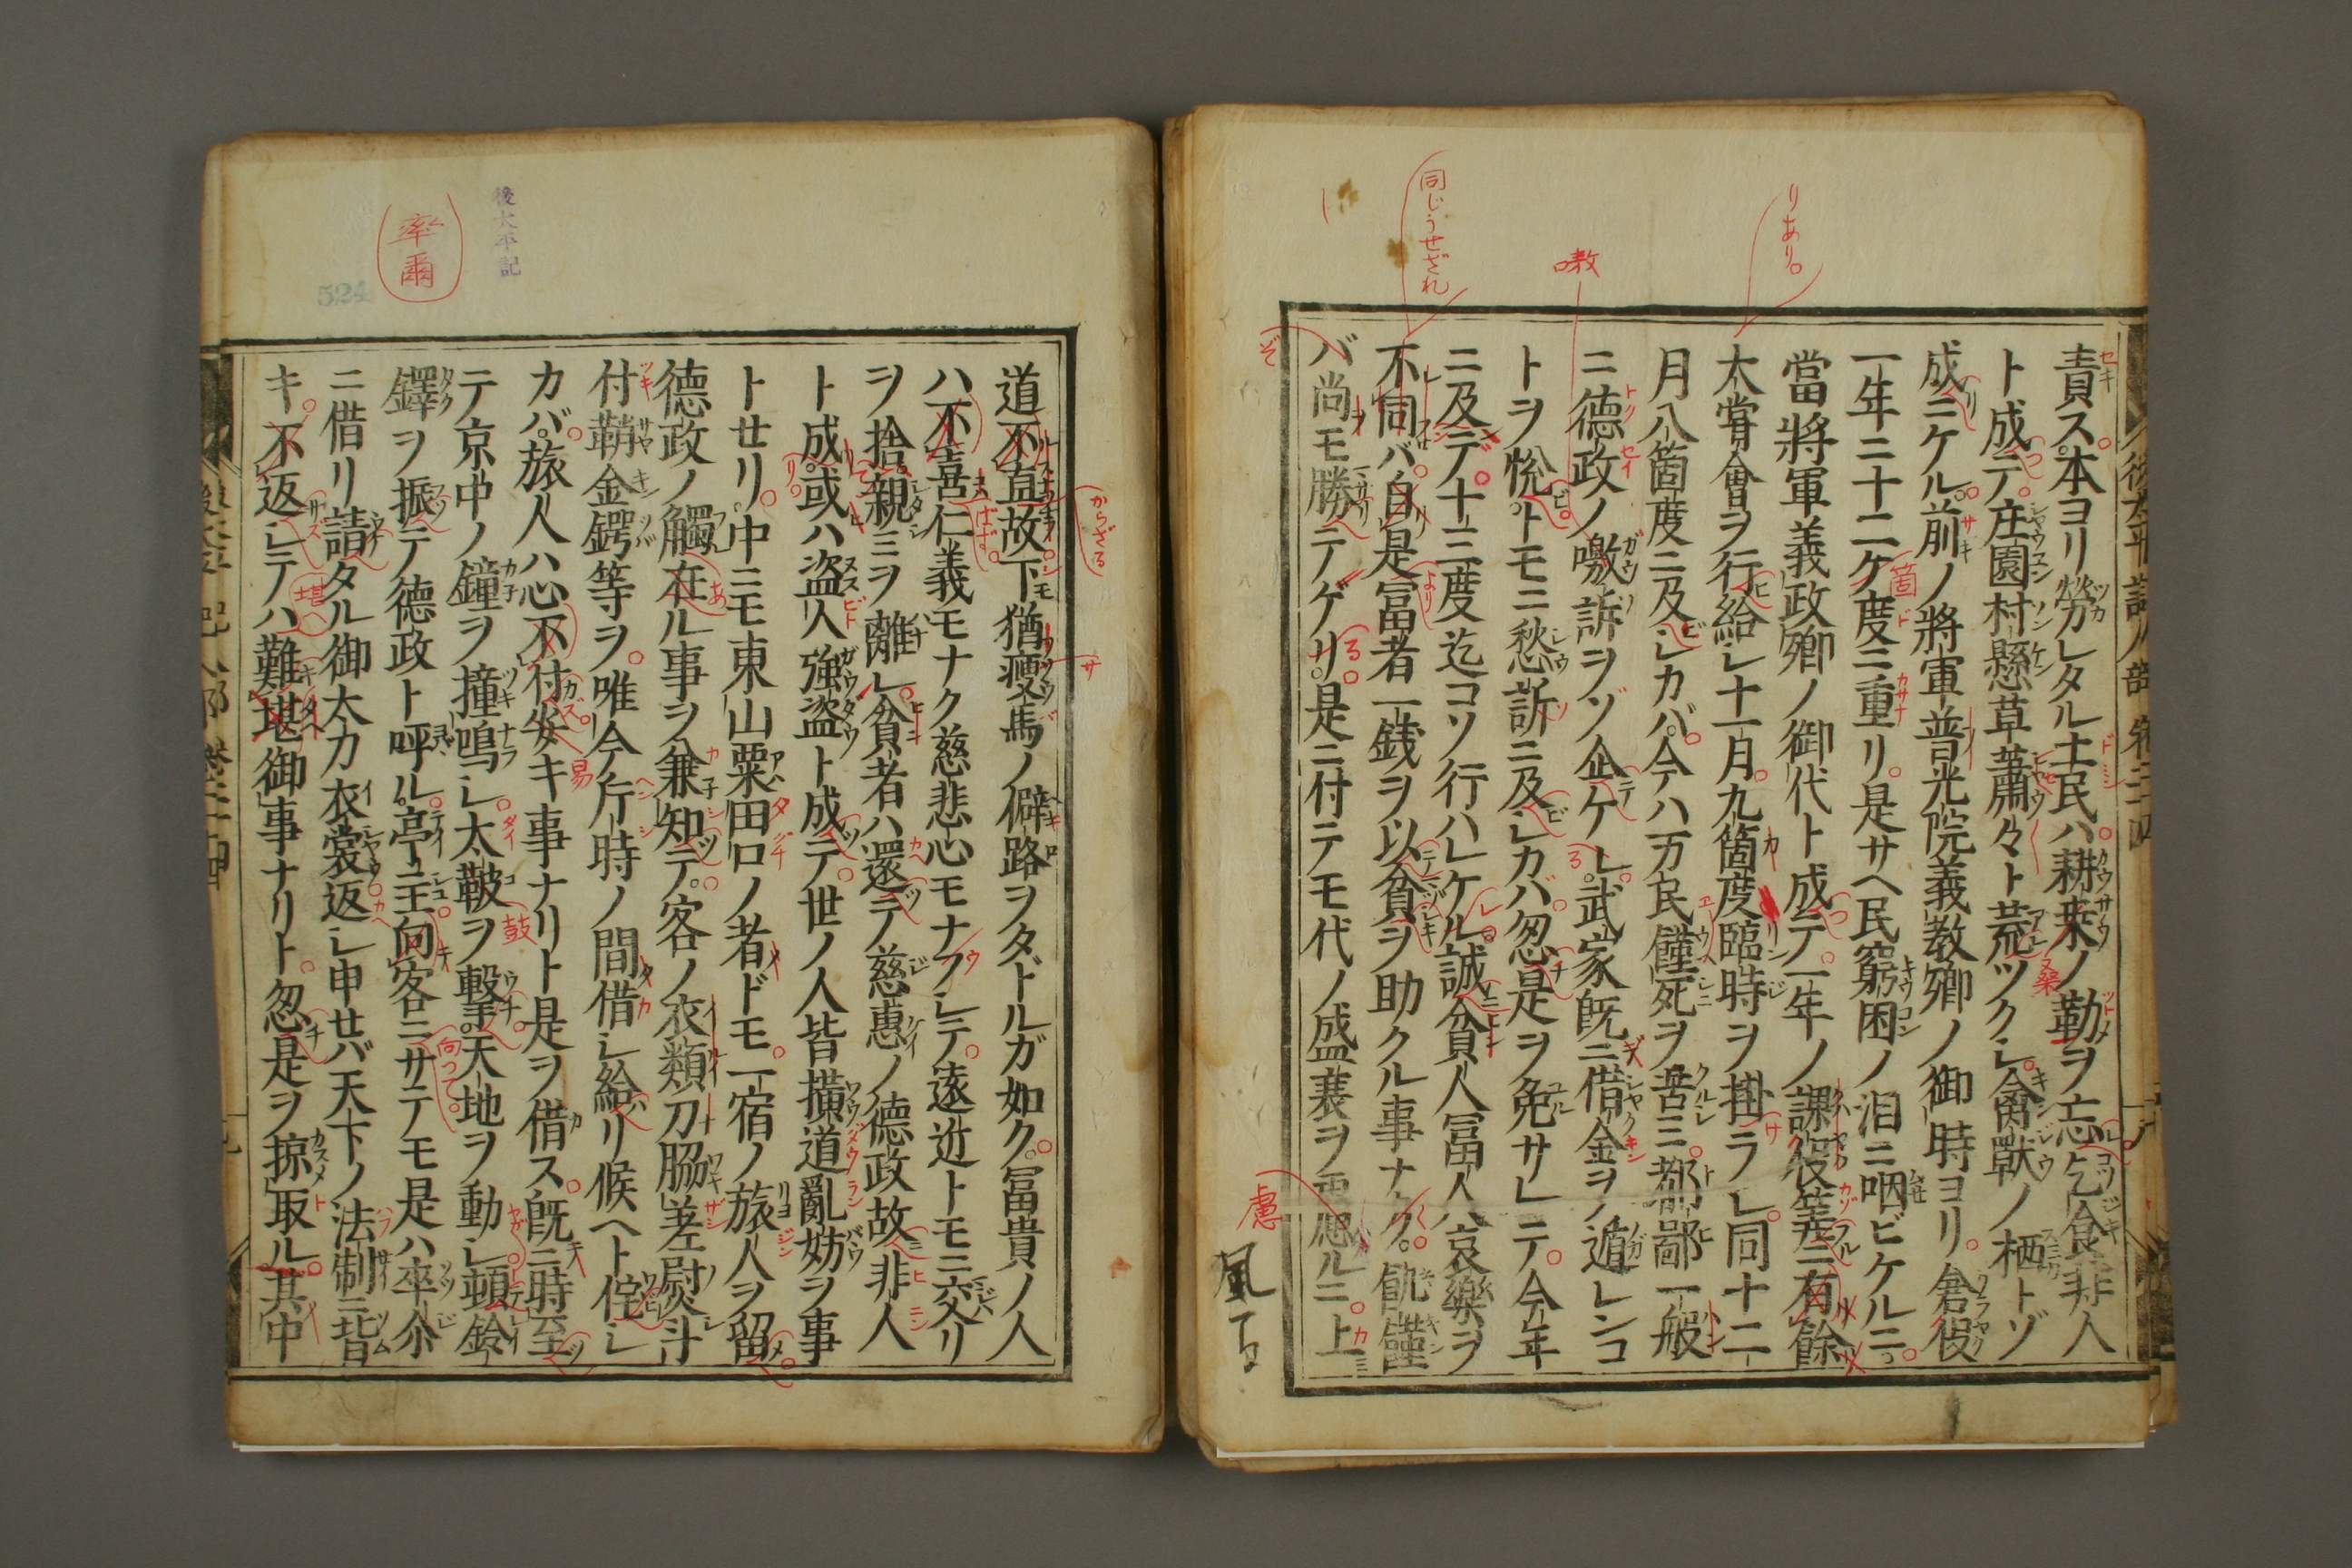 責ス。本ヨリ勞レタル土民ハ耕来ノ勤ヲ忘レ乞食非人
ト成テ。庄園村懸草蕭々ト荒ツクシ。禽獣ノ栖トゾ
成ニケル。前ノ將軍普光院義教卿ノ御時ヨリ。倉役
一年ニ十二ケ度ニ重リ。是サヘ民窮困ノ泪ニ咽ビケルニ。
當將軍義政卿ノ御代ト成テ。一年ノ課役筭ニ有餘
大甞會ヲ行給シ十一月。九箇度臨時ヲ掛ラレ。同十二
月八箇度ニ及シカバ。今ハ万民饉死ヲ苦ミ。都鄙一般
ニ德政ノ嗷訴ヲゾ企ケレ。武家既ニ借金ヲノ遁レンコ
トヲ悦。トモニ愁訴ニ及シカバ。忽是ヲ免サレテ。今年
ニ及デ。十三度迄コソ行ハレケル。誠貧人冨人ハ哀樂ヲ
不同バ。自是冨者一銭ヲ以貧ヲ助クル事ナク。飢饉
バ尚モ勝テゲリ。是ニ付テモ代ノ盛衰ヲ思ルニ。上
道不直故。下猶瘦馬ノ僻路ヲタドルガ如ク。冨貴ノ人
ハ不喜仁義モナク慈悲心モナフシテ。遠近トモニ交リ
ヲ捨。親ミヲ離レ。貧者ハ還テ慈惠ノ德政故。非人
ト成。或ハ盗人強盗ト成テ。世ノ人皆擴道亂妨ヲ事
トセリ。中ニモ東山粟田口ノ者ドモ。一宿ノ旅人ヲ留
德政ノ觸在ル事ヲ兼知テ。客ノ衣類刀脇差熨斗
付鞘金鍔等ヲ。唯今斤時ノ間借シ給リ候ヘト侘シ
カバ。旅人ハ心不付安キ事ナリト是ヲ借ス。既ニ時至
テ京中ノ鐘ヲ撞鳴シ。太鞁ヲ擊。天地ヲ動シ。頓鈴
鐸ヲ振テ德政ト呼ル。亭主向客ニサテモ是ハ卒尒
ニ借リ請タル御太カ衣裳返シ申セバ天下ノ法制ニ背
キ。不返シテハ難堪御事ナリト。忽是ヲ掠取ル。其中
りあり。
嗷
同じうせざれ
ぞ
慮
からざる
率爾
後太平記
524
箇
桑
易
鼓
向つて。
堪へ
より